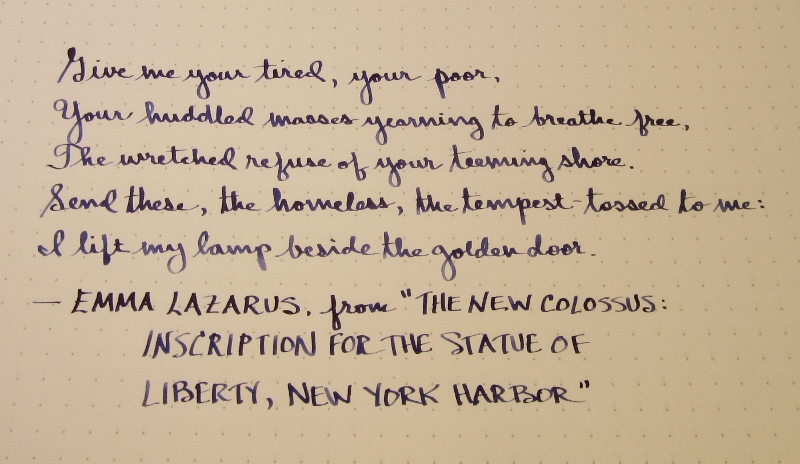 Give me your tired, your poor,
Your huddled masses yearning to breathe free,
The wretched refuse of your teeming shore.
Send these, the homeless, the tempest-tossed to me:
I lift my lamp beside the golden door.
— EMMA LAZARUS, from "THE NEW COLOSSUS:
INSCRIPTION FOR THE STATUE OF
LIBERTY, NEW YORK HARBOR"